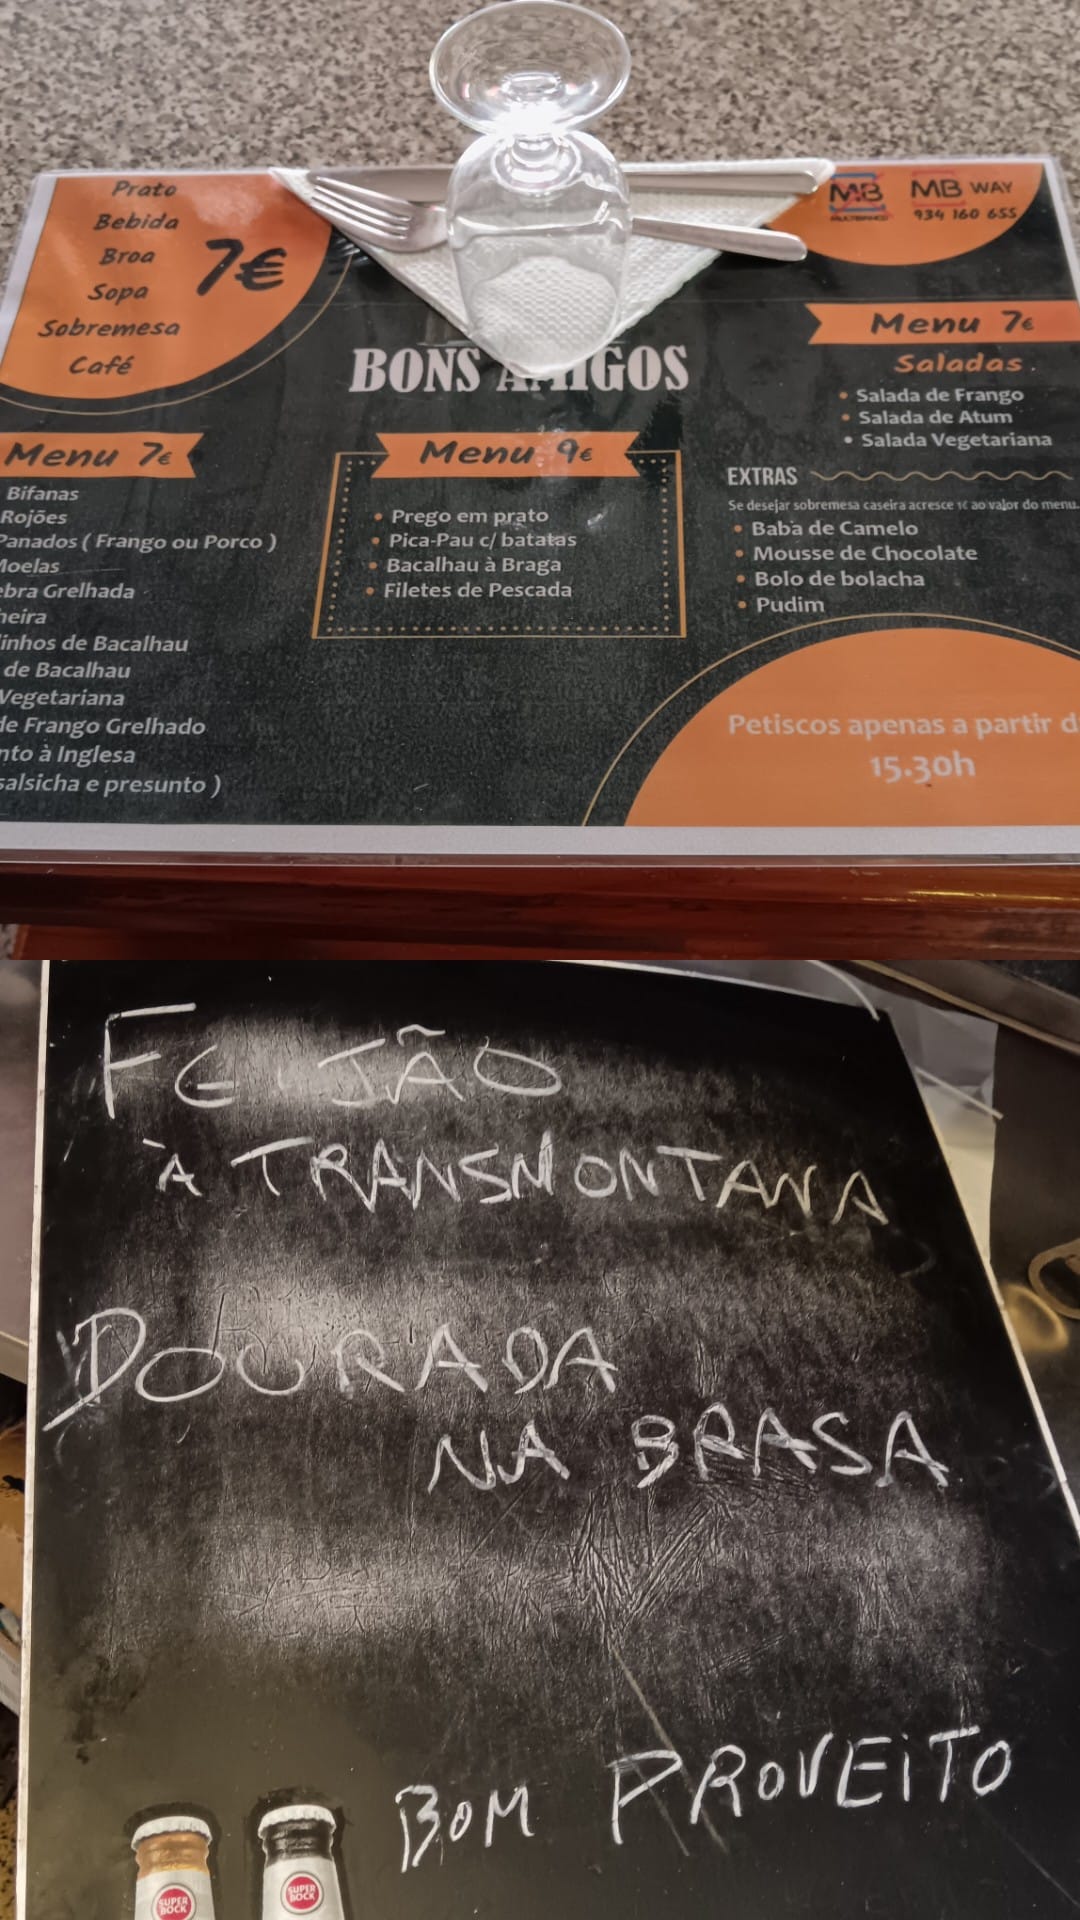 Prato
Bebida
Broa
Sopa
Sobremesa
Café
7€
MB
MULTIBANCO
MB WAY
934 160 655
BONS AMIGOS
Menu 7€
Bifanas
Rojões
Panados ( Frango ou Porco )
Moelas
Grelhada
de Bacalhau
de Bacalhau
Vegetariana
de Frango Grelhado
à Inglesa
salsicha e presunto )
Menu 9€
• Prego em prato
• Pica-Pau c/ batatas
• Bacalhau à Braga
• Filetes de Pescada
Menu 7€
Saladas
• Salada de Frango
• Salada de Atum
• Salada Vegetariana
EXTRAS
Se desejar sobremesa caseira acresce 1€ ao valor do menu.
• Baba de Camelo
• Mousse de Chocolate
• Bolo de bolacha
• Pudim
Petiscos apenas a partir d
15.30h
FEIJÃO
À TRANSMONTANA
DOURADA
NA BRASA
BOM PROVEITO
SUPER BOCK
SUPER BOCK